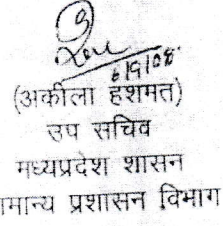 6/9/08
(अकीला हशमत)
उप सचिव
मध्यप्रदेश शासन
मान्य प्रशासन विभाग